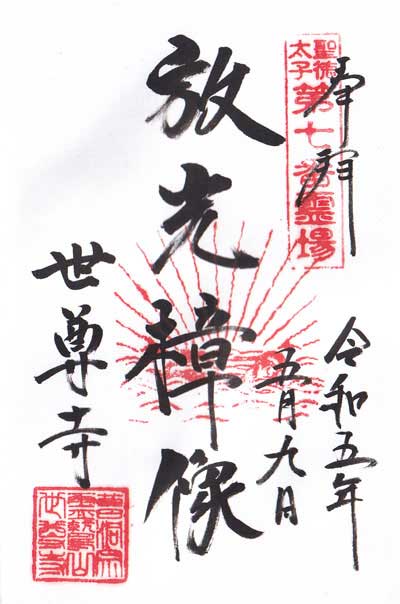 奉拝
聖徳
太子
第七番霊場
令和五年
五月九日
放光樟像
世尊寺